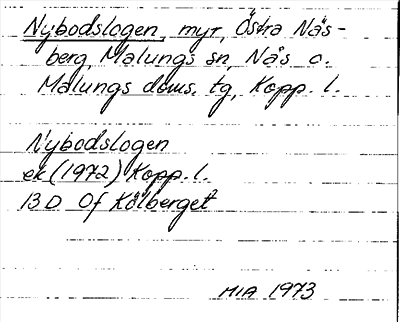 Nybodslogen, myr, Östra Näs-
berg, Malungs sn, Nås o.
Malungs doms. tg, Kopp. l.
Nybodslogen
ek (1972) Kopp. l.
13 D 0f Kölberget
MIA 1973